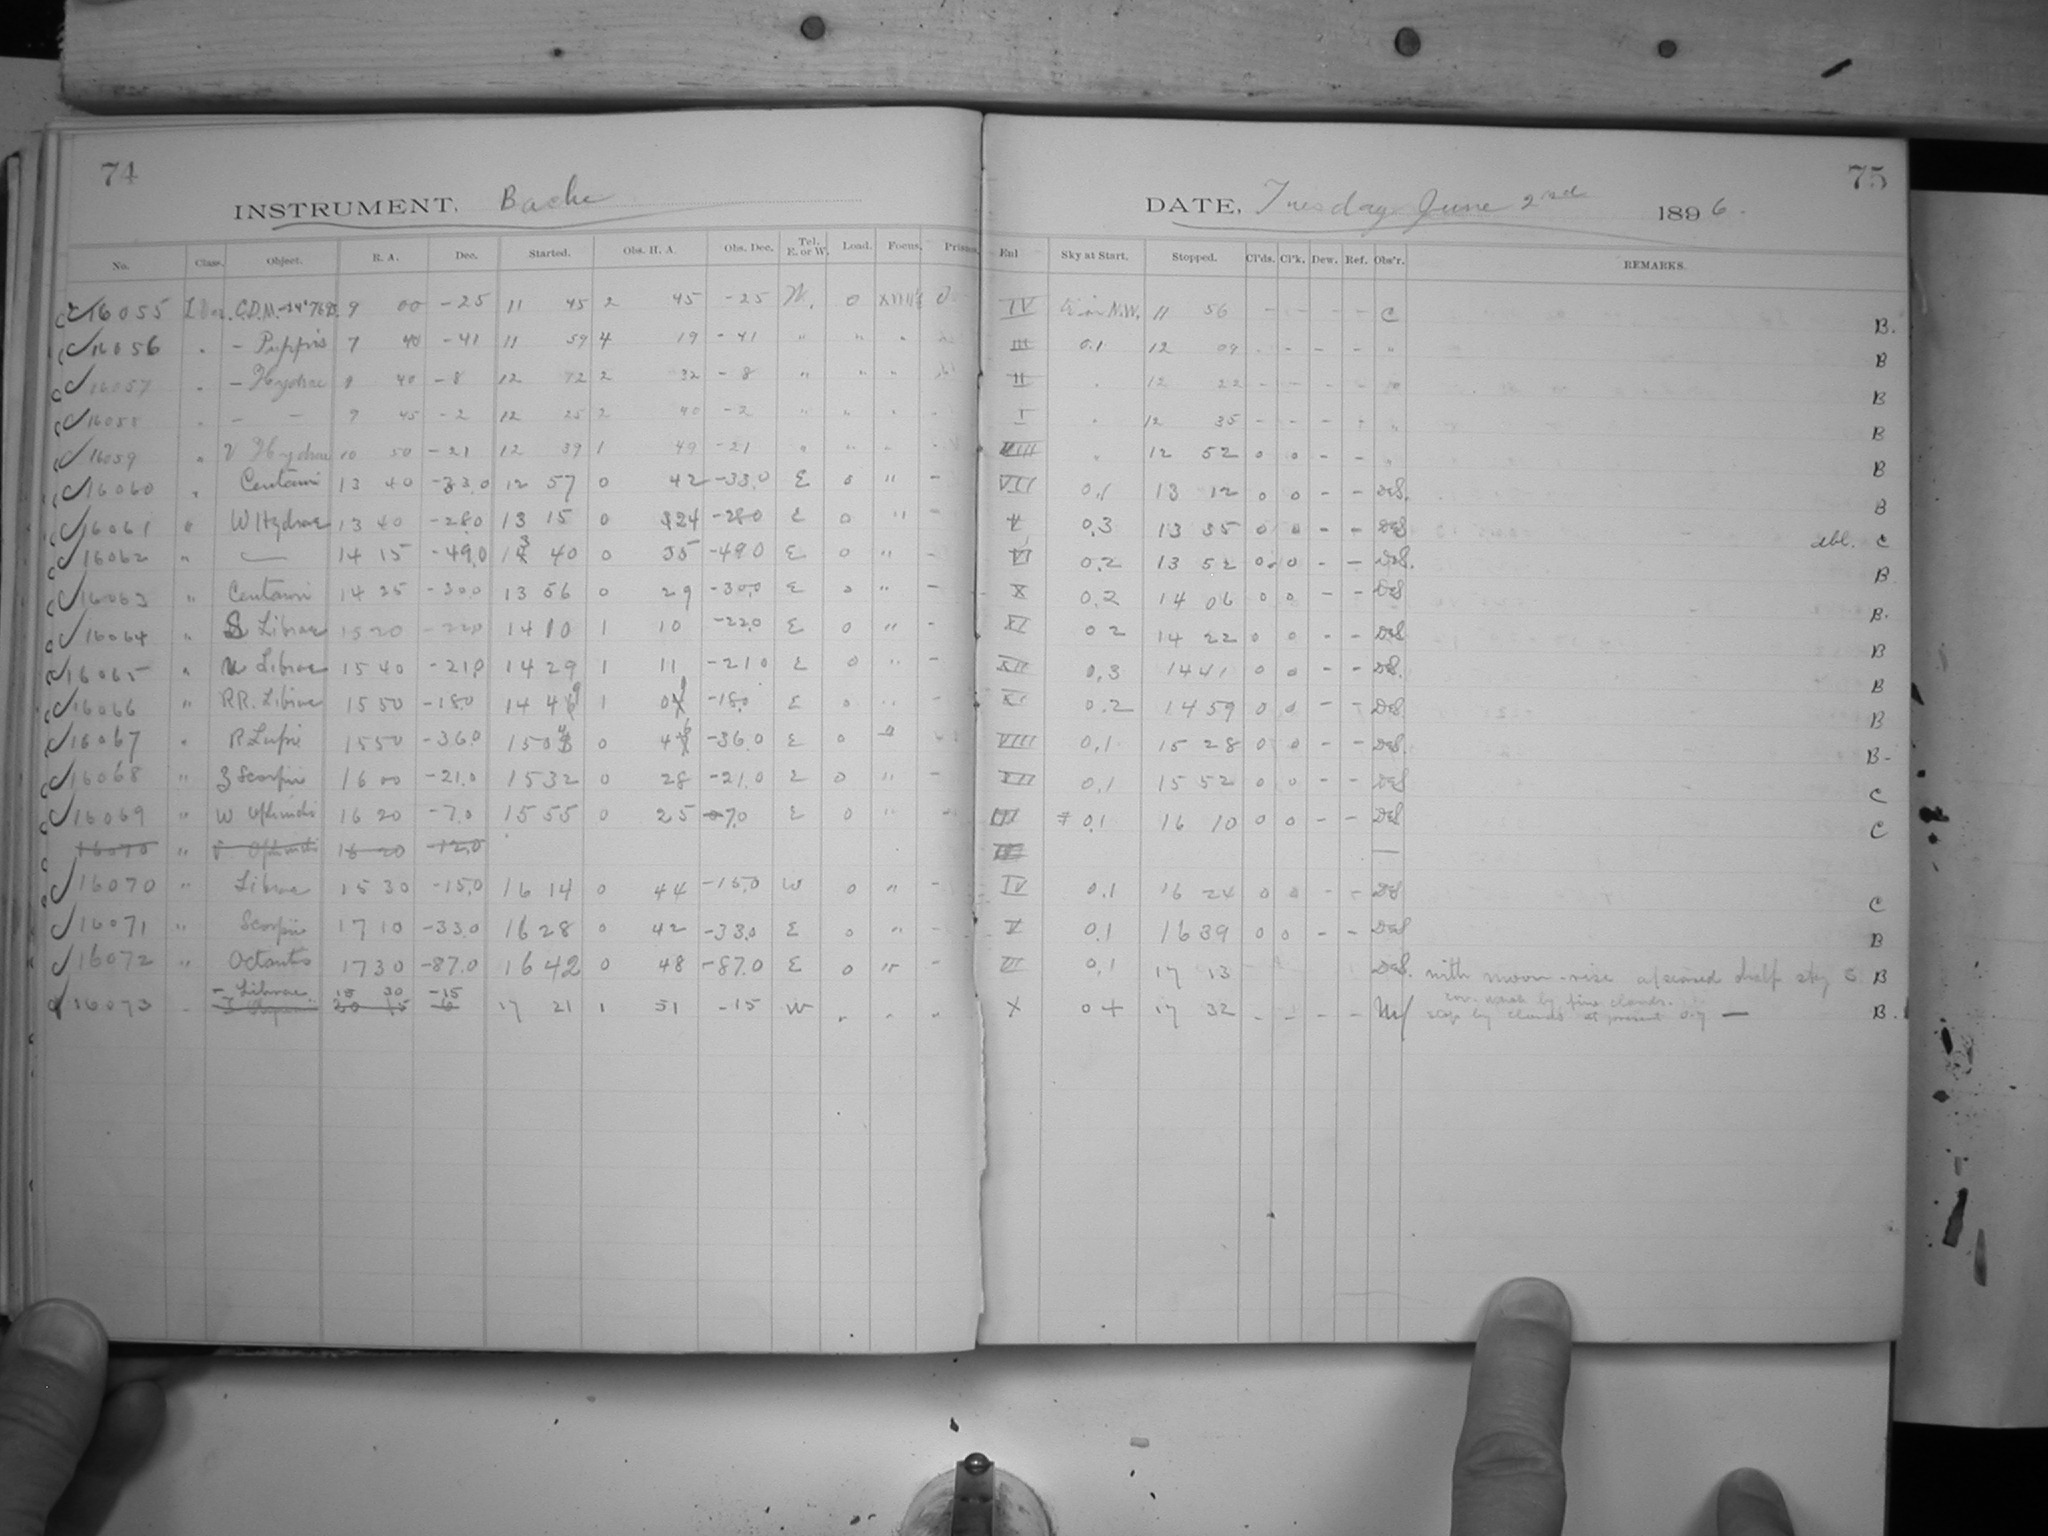 74
INSTRUMENT, Bache
No. Class. Object. R. A. Dec. Started. Obs. H. A. Obs. Dec. Tel. E. or W. Load. Focus. Prism.
16055 C.D.M. 9 00 -25 11 45 2 45 -25 W. 0
16056 " - Puppis 7 40 -41 11 59 4 19 -41 " " "
16057 " - Hydrae 9 40 -8 12 12 2 32 -8 " " "
16058 " - - 9 45 -2 12 25 2 40 -2 " " "
16059 " V Hydrae 10 50 -21 12 39 1 49 -21 " " "
16060 " Centauri 13 40 -33.0 12 57 0 42 -33.0 E 0 " -
16061 " W Hydrae 13 40 -28.0 13 15 0 24 -28.0 E 0 " -
16062 " — 14 15 -49.0 13 40 0 35 -49.0 E 0 " -
16063 " Centauri 14 25 -30.0 13 56 0 29 -30.0 E 0 " -
16064 " S Librae 15 20 -22.0 14 10 1 10 -22.0 E 0 " -
16065 " U Librae 15 40 -21.0 14 29 1 11 -21.0 E 0 " -
16066 " RR. Librae 15 50 -18.0 14 49 1 01 -18.0 E 0 " -
16067 " R Lupi 15 50 -36.0 15 04 0 4 -36.0 E 0 "
16068 " Z Scorpii 16 00 -21.0 15 32 0 28 -21.0 E 0 " -
16069 " W Ophiuchi 16 20 -7.0 15 55 0 25 -7.0 E 0 " -
16070 " V Ophiuchi 16 20 -12.0
16070 " Librae 15 30 -15.0 16 14 0 44 -15.0 W 0 " -
16071 " Scorpii 17 10 -33.0 16 28 0 42 -33.0 E 0 " -
16072 " Octantis 17 30 -87.0 16 42 0 48 -87.0 E 0 " -
- Librae 15 30 -15
16073 17 21 1 51 -15 W " " "
75
DATE, Tuesday June 2nd 1896.
Enl Sky at Start. Stopped. Cl'ds. Cl'k. Dew. Ref. Obs'r. REMARKS.
IV in N.W. 11 56 - - - - C B.
III 0.1 12 09 - - - - " B
II " 12 22 - - - - " B
I " 12 35 - - - - " B
" 12 52 0 0 - - " B
VII 0.1 13 12 0 0 - - DeS. B
V 0.3 13 35 0 0 - - DeS dbl. C
VI 0.2 13 52 0 0 - - DeS. B
X 0.2 14 06 0 0 - - DeS B.
XI 0.2 14 22 0 0 - - DeS B
XII 0.3 14 41 0 0 - - DeS. B
XI 0.2 14 59 0 0 - - DeS B
VIII 0.1 15 28 0 0 - - DeS. B-
XII 0.1 15 52 0 0 - - DeS C
III 0.1 16 10 0 0 - - DeS C
IV 0.1 16 24 0 0 - - DeS C
V 0.1 16 39 0 0 - - DeS B
III 0.1 17 13 DeS. with moon-rise half sky B
by fine clouds.
X 0 + 17 32 - - - - stop by clouds at present 0.7 — B.